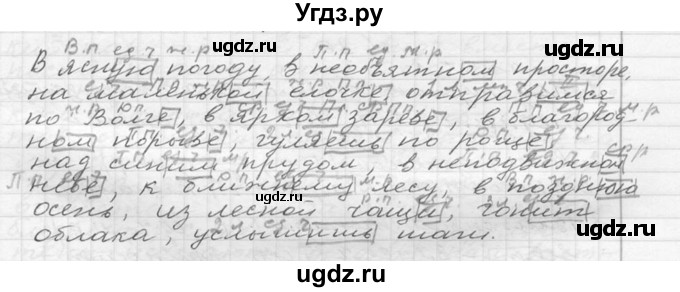 Угдз.ру
В.п ед.ч ж.р П.п ед м.р
В ясную погоду, в необъятном просторе,
на маленькой ёлочке отправимся
по Волге, в ярком зареве, в благород-
ном порыве, гуляешь по роще,
над синим прудом, в неподвижном
небе, к ближнему лесу, в позднюю
осень, из лесной чащи, гонит
облака, услышишь шаги.
ugdz.ru
ugdz.ru
ugdz.ru
ugdz.ru
ugdz.ru
ugdz.ru
ugdz.ru